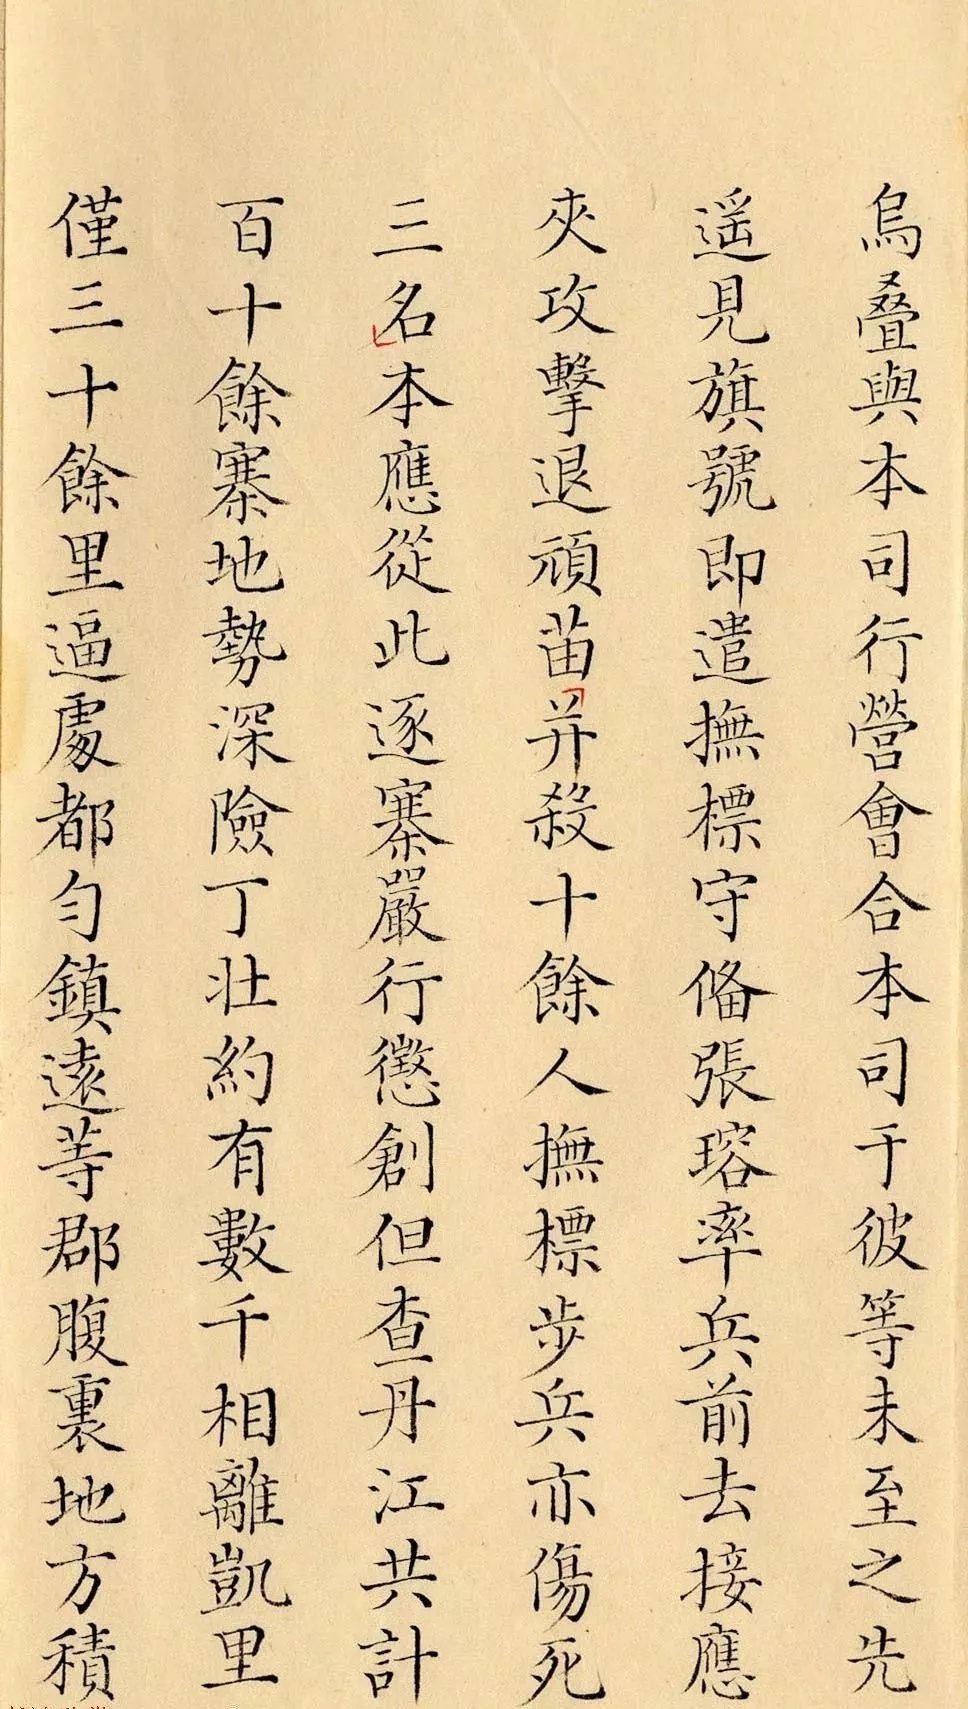 烏疊與本司行營會合本司于彼等未至之先
遥見旗號即遣撫標守俻張瑢率兵前去接應
夾攻擊退頑苗并殺十餘人撫標步兵亦傷死
三名本應從此逐寨嚴行懲創但查丹江共計
百十餘寨地勢深險丁壯約有數千相離凱里
僅三十餘里逼處都勻鎮遠等郡腹裏地方積